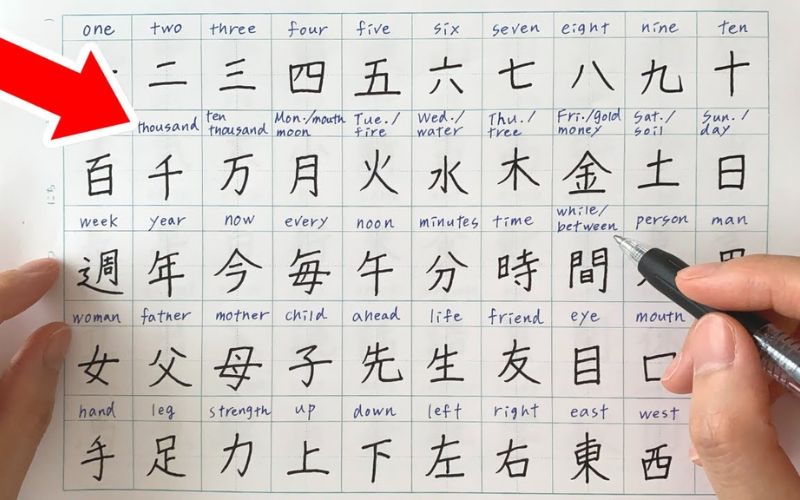 one two three four five six seven eight nine ten
二 三 四 五 六 七 八 九 十
thousand ten thousand Mon./mouth moon Tue./fire Wed./water Thu./tree Fri./gold money Sat./soil Sun./day
百 千 万 月 火 水 木 金 土 日
week year now every noon minutes time while/between person man
週 年 今 毎 午 分 時 間
woman father mother child ahead life friend eye mouth
女 父 母 子 先 生 友 目 口
hand leg strength up down left right east west
手 足 力 上 下 左 右 東 西